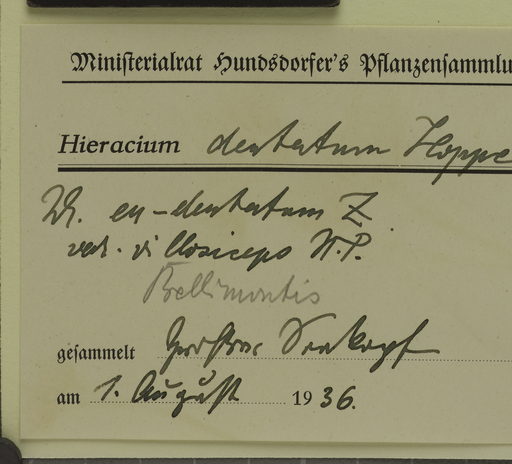 Ministerialrat Hundsdorfer's Pflanzensammlu
Hieracium dentatum Hoppe
eu-dentatum Z
var. villosiceps N.P.
Bellimontis
gesammelt
am 1. August 1936.